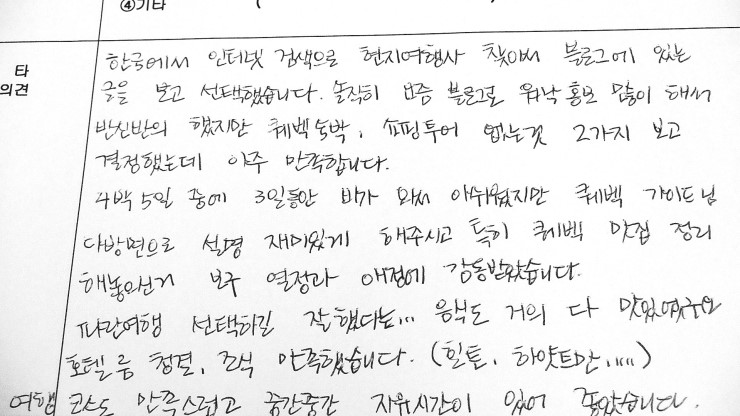 ④기타 (
타
의견
한국에서 인터넷 검색으로 현지여행사 찾아서 블로그에 있는
글을 보고 선택했습니다. 솔직히 요즘 블로그로 워낙 홍보 많이 해서
반신반의 했지만 퀘벡숙박, 쇼핑투어 없는것 2가지 보고
결정했는데 아주 만족합니다.
4박 5일 중에 3일동안 비가 와서 아쉬웠지만 퀘벡 가이드님
다방면으로 설명 재미있게 해주시고 특히 퀘벡 맛집 정리
해놓으신거 보구 열정과 애정에 감동받았습니다.
파란여행 선택하길 잘했다는... 음식도 거의 다 맛있었구요
호텔 룸 청결, 조식 만족했습니다. (힐튼, 하얏트만,....)
여행 코스도 만족스럽고 중간중간 자유시간이 있어 좋았습니다.